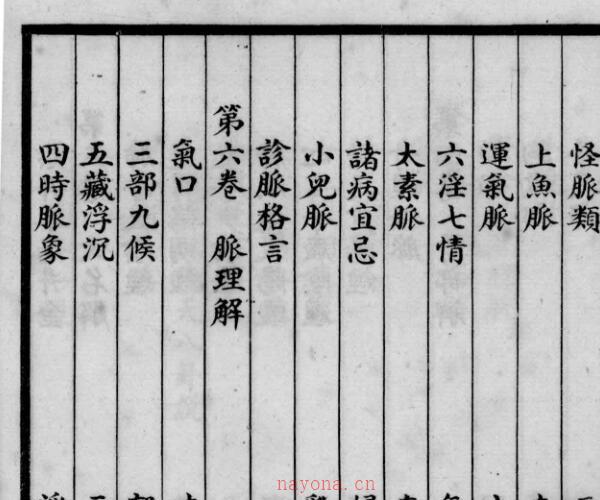 怪脈類
上魚脈
運氣脈
六淫七情
太素脈
諸病宜忌
小兒脈
診脈格言
第六卷 脈理解
氣口
三部九候
五藏浮沉
四時脈象
nayona.cn